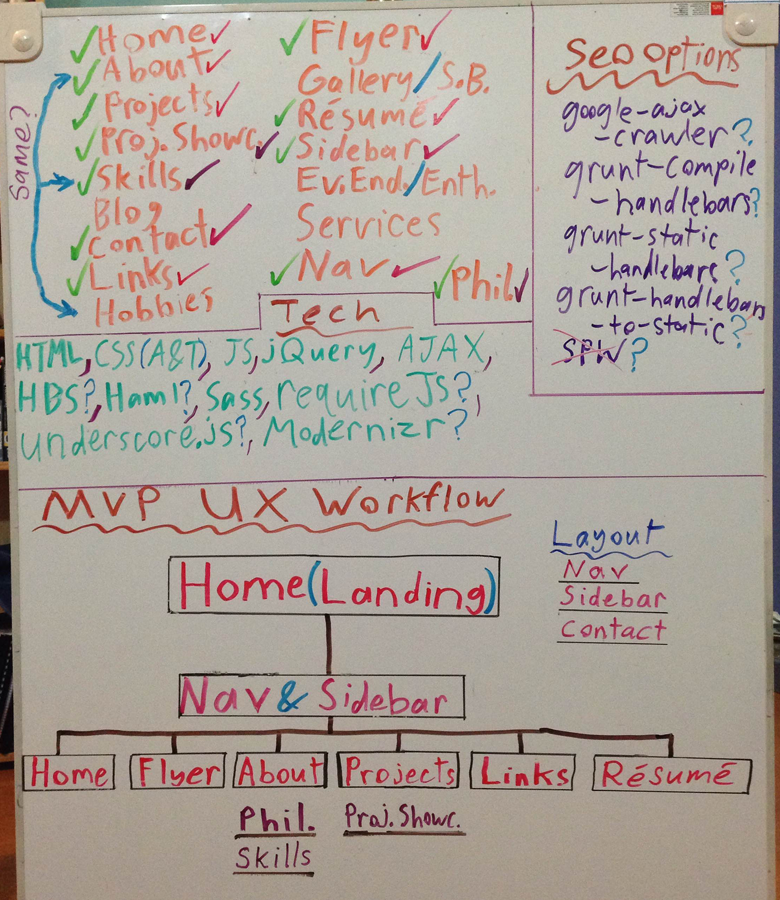 Same?
Home
About
Projects
Proj. Showc.
Skills
Blog
Contact
Links
Hobbies
Flyer
Gallery/S.B.
Résumé
Sidebar
Ev.End./Enth.
Services
Nav
Phil.
Seo options
google-ajax
-crawler?
grunt-compile
-handlebars?
grunt-static
-handlebars?
grunt-handlebars
-to-static?
SPW?
Tech
HTML, CSS(A&T), JS, jQuery, AJAX,
HBS?, Haml?, Sass, requireJS?,
underscore.js?, Modernizr?
MVP UX Workflow
Layout
Nav
Sidebar
Contact
Home(Landing)
Nav & Sidebar
Home Flyer About Projects Links Résumé
Phil. Proj. Showc.
Skills